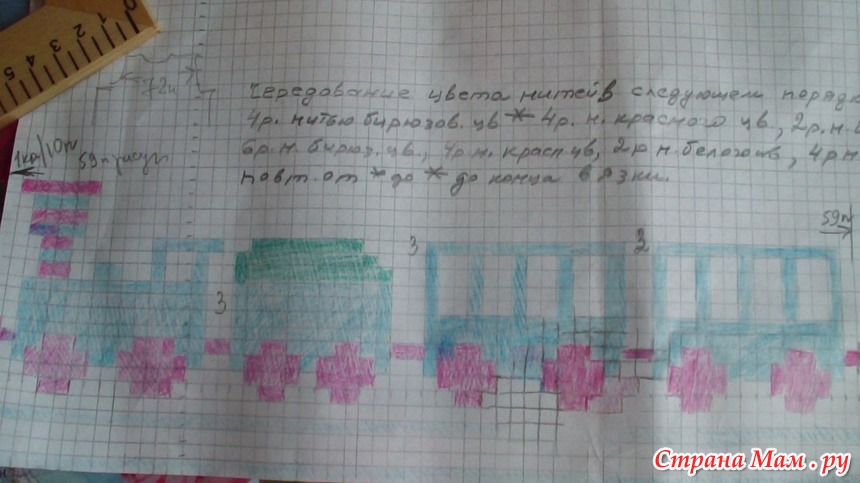 0 1 2 3 4 5
72п
Чередование цвета нитей в следующем поряд
4р. нитью бирюзов. цв * 4р. н. красного цв., 2р. н.
6р. н. бирюз. цв., 4р. н. красн цв, 2р н. белого цв, 4р н.
повт. от * до * до конца вязки.
1кр/10п
59п рисун
59п
3
3
2
Страна Мам.ру